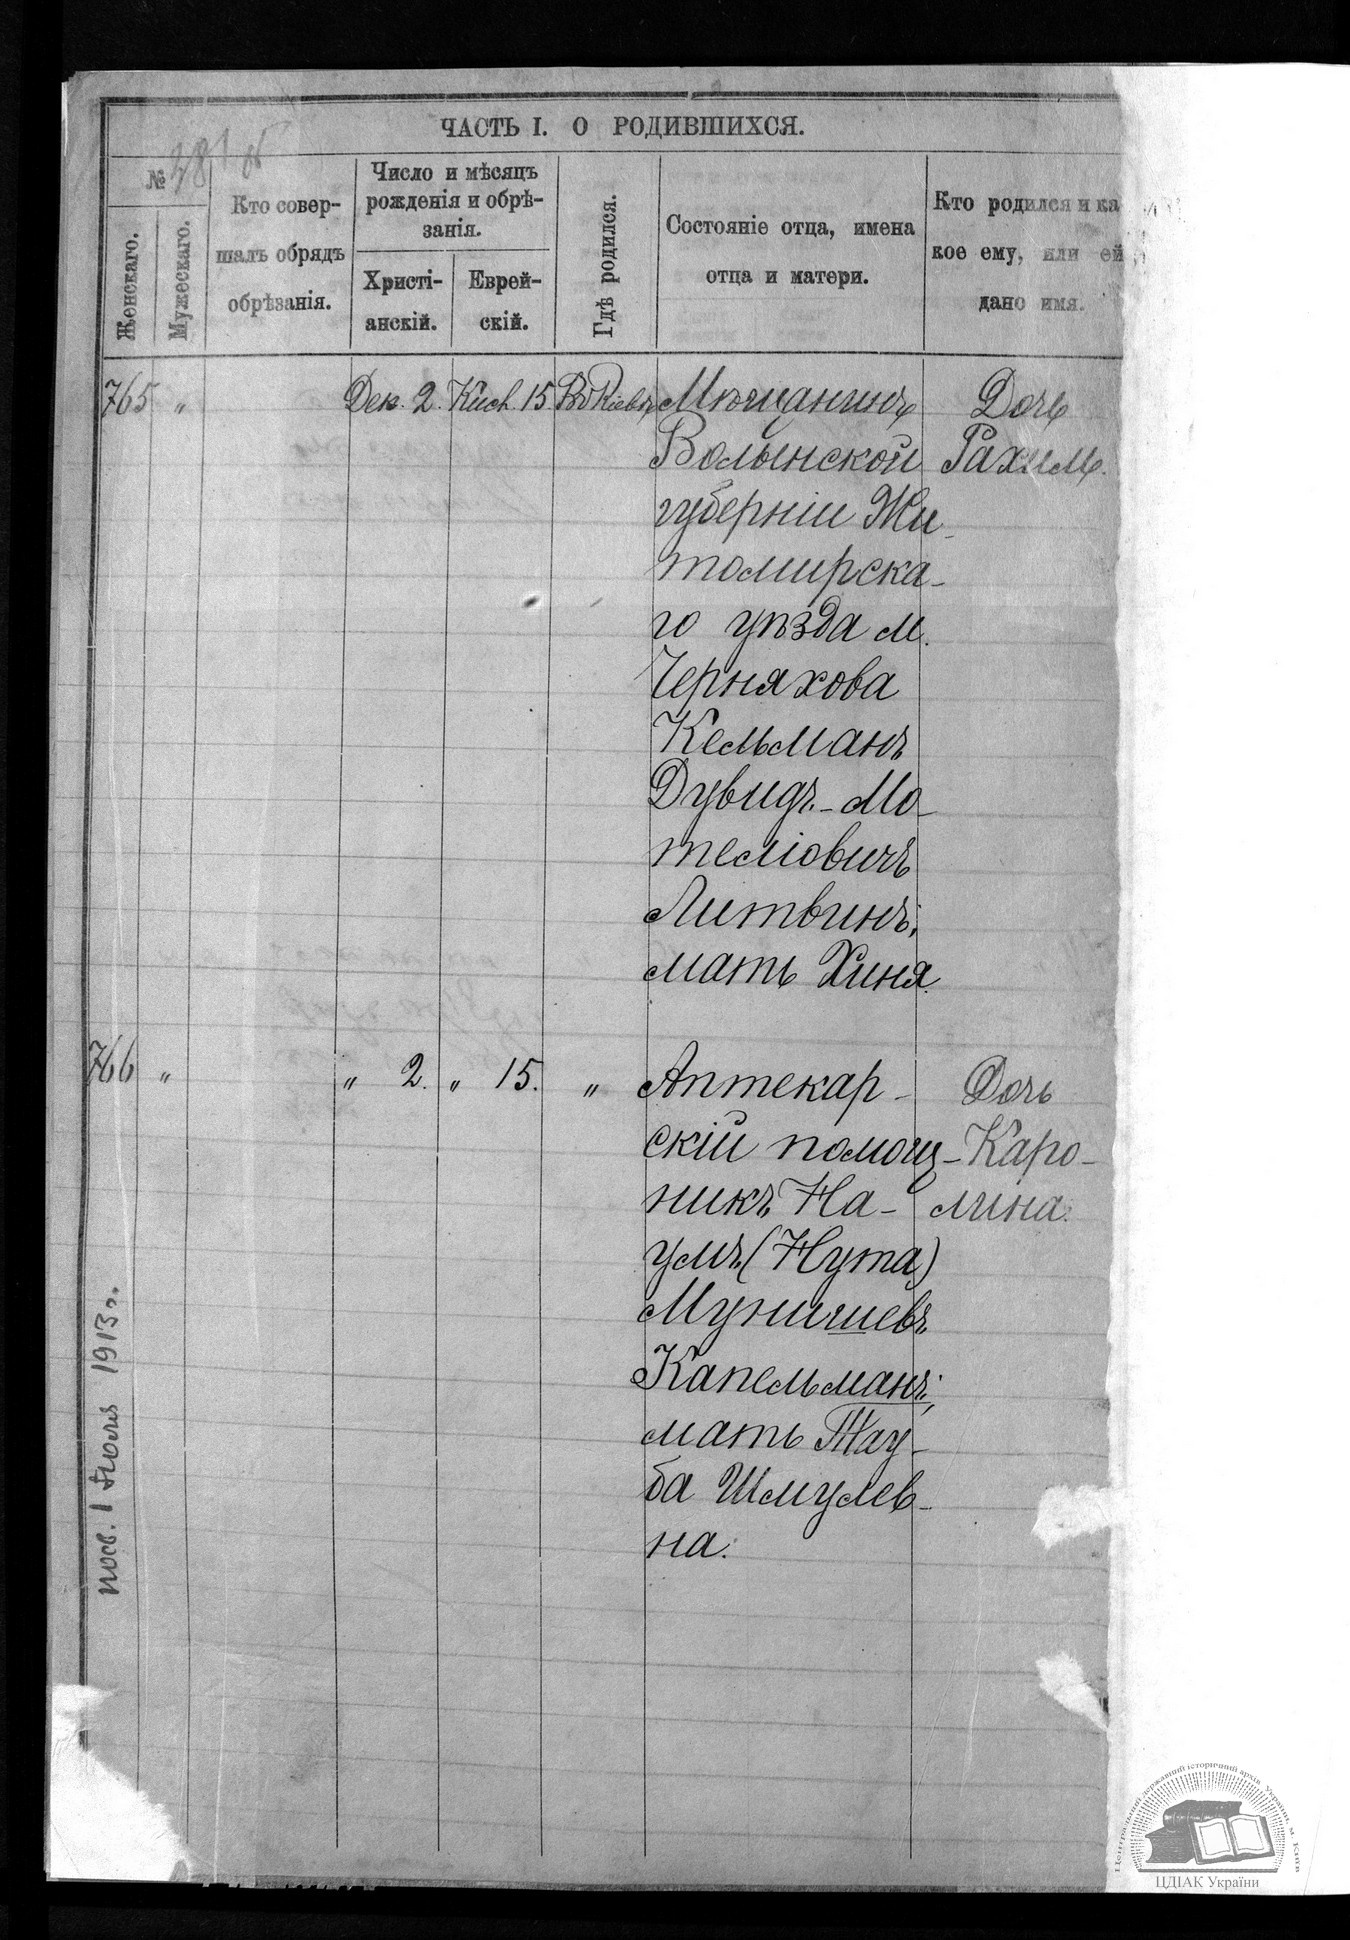 ЧАСТЬ I. О РОДИВШИХСЯ.
№
281 об
Женскаго.
Мужескаго.
Кто совер-
шалъ обрядъ
обрѣзанія.
Число и мѣсяцъ
рожденія и обрѣ-
занія.
Христі-
анскій.
Еврей-
скій.
Гдѣ родился.
Состояніе отца, имена
отца и матери.
Кто родился и ка
кое ему, или ей
дано имя.
765 „ Дек. 2. Кисл. 15. Въ Кіевѣ Мѣщанинъ Дочь
Волынской Рахиль.
губерніи Жи-
томирска-
го уѣзда м.
Черняхова
Кельманъ
Дувидъ-Мо-
теліовичъ
Литвинъ;
мать Хиня.
766 „ „ 2. „ 15. „ Аптекар- Дочь
скій помощ- Каро-
никъ На- лина.
умъ (Нута)
Мунишевъ
Капельманъ;
мать Тау-
ба Шмулев-
на.
посв. 1 Июля 1913 г.
Центральний державний історичний архів України, м. Київ
ЦДІАК України